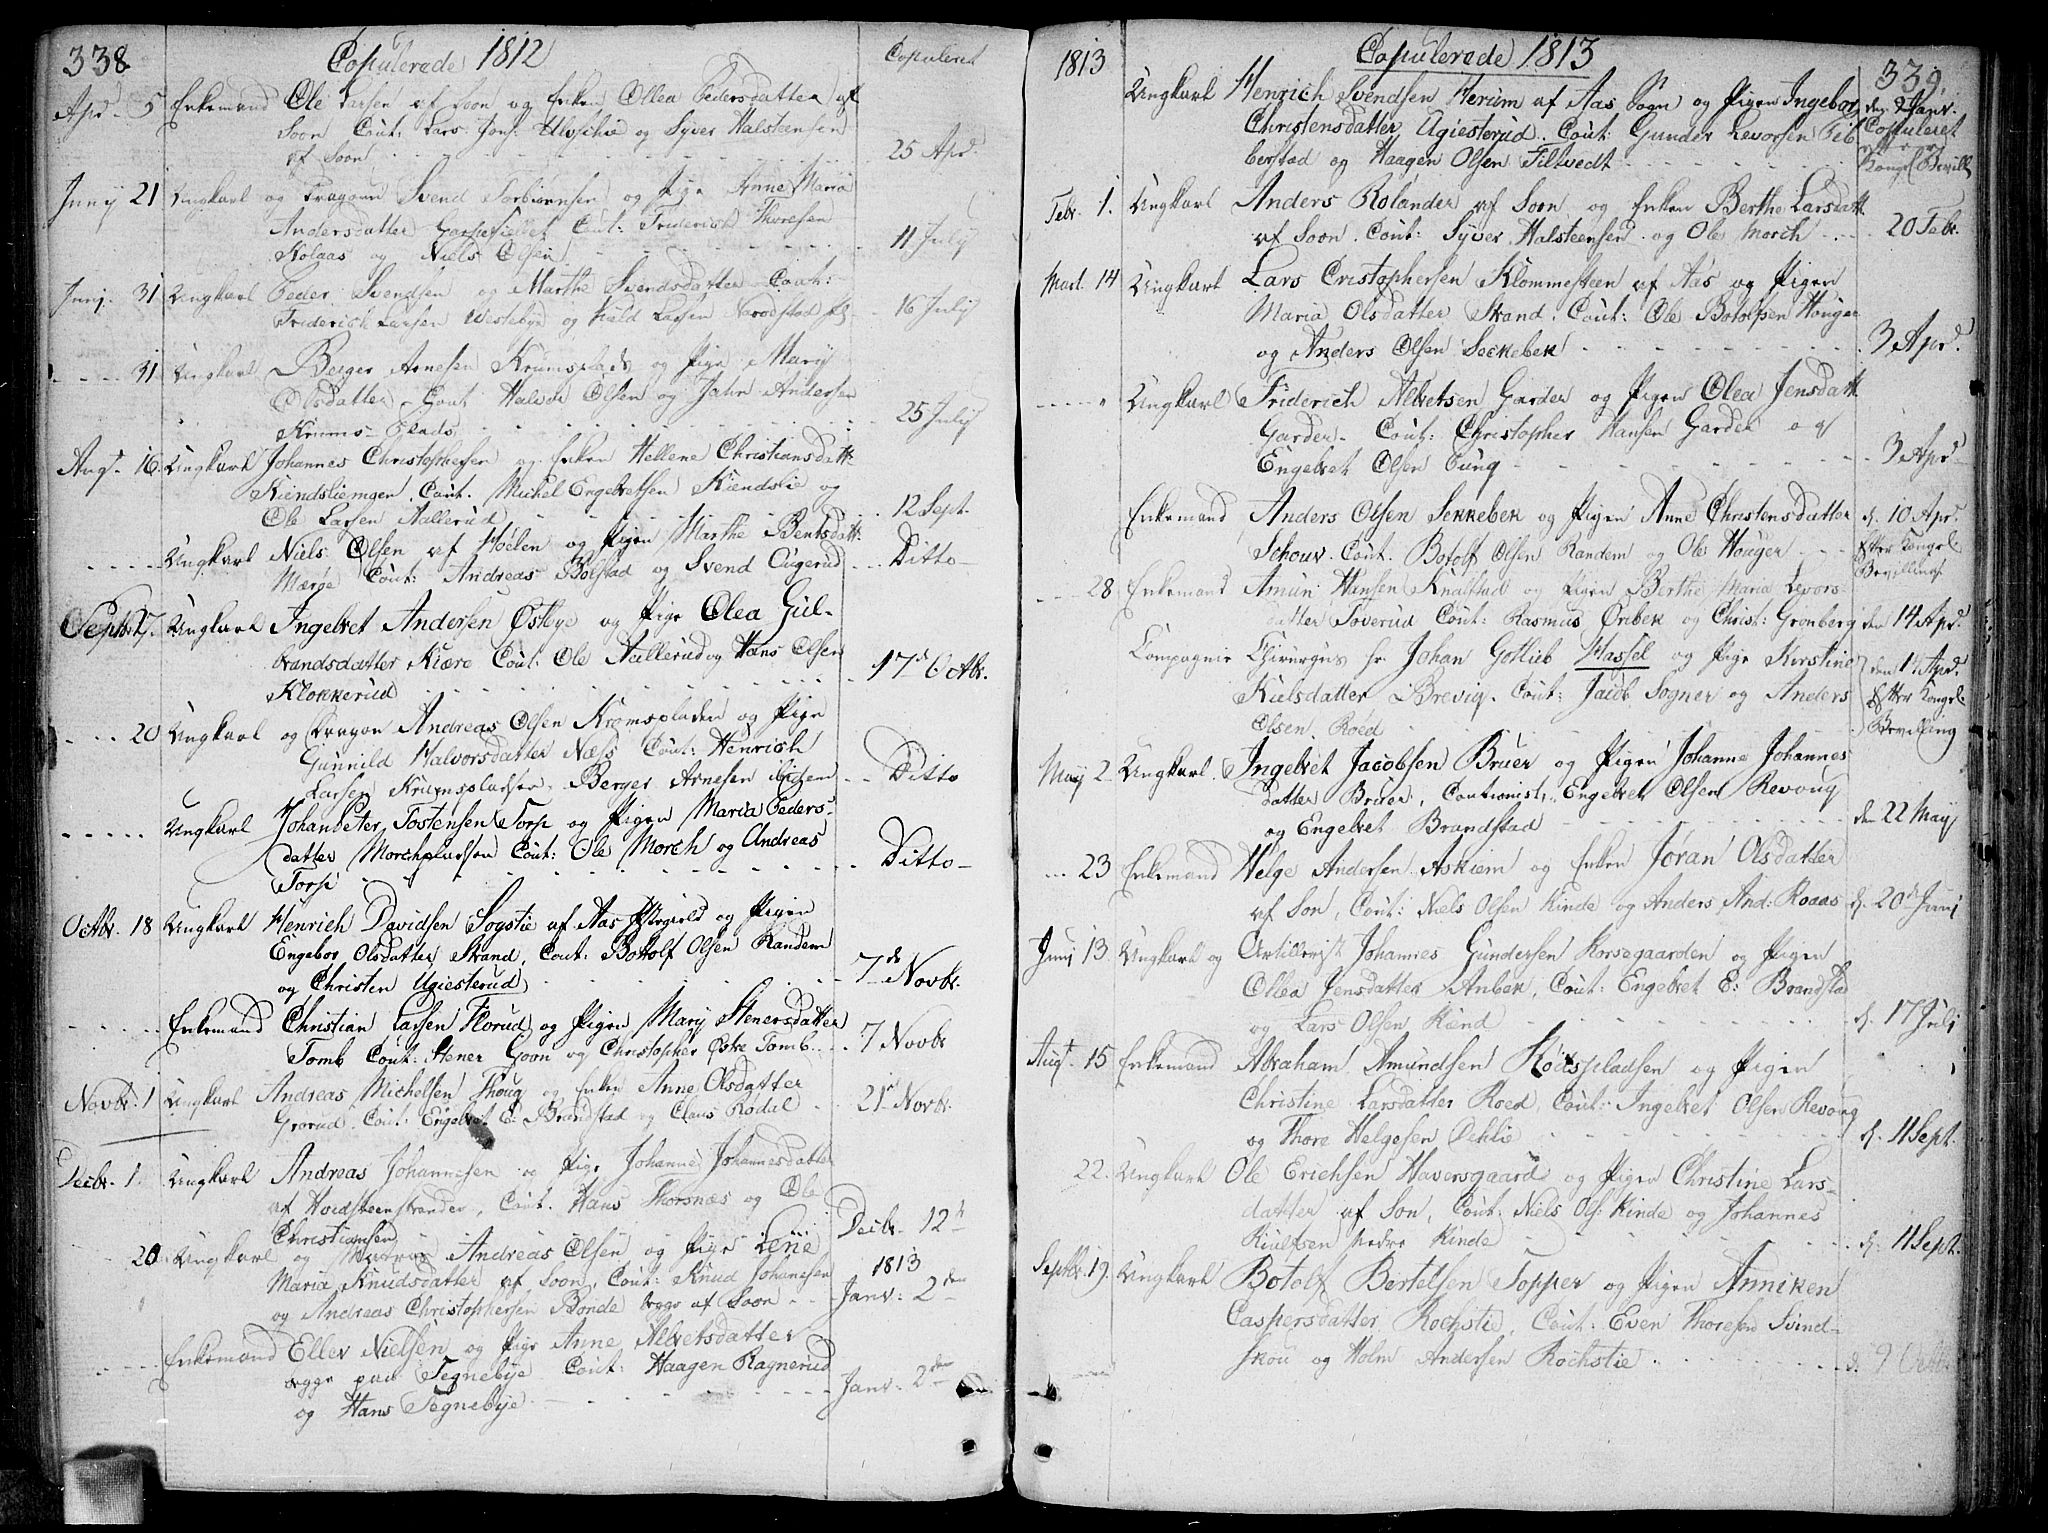 338
Copulerede 1812
Copuleret
Apr. 5 Enkemand Ole Larsen af Soon og Enken Ollea Pedersdatter af
Soon Cout: Lars Jons: Ulvsihie og Syver Halsteensen
af Soon 25 Apr.
Junij 21 Ungkarl og Dragoun Svend Torbiørnsen og Pige Anne Maria
Andersdatter Cout: Friderich Thoresen
Kolaas og Niels Olsen 11 July
Junij. 31 Ungkarl Peder Svendsen og Marthe Svendsdatter Cout:
Friderich Larsen Westebye og Kield Larsen 16 July
31 Ungkarl Berger Arnesen Krumsplads og Pige Mary
Olsdatter Cout Halvor Olsen og Jahn Andersen
Krums-Plads 25 July
Aug. 16. Ungkarl Johannes Christophersen og Enken Hellene Christiansdatt:
Kiendsliemgen. Cout. Michel Engebretsen Kiendslie og
Ole Larsen Aallerud 12 Sept.
Ungkarl Niels Olsen af Hoelen og Pigen Marthe Bentsdatt:
Mærge Cout: Andreas Bolstad og Svend Cugerud Ditto
Septbr. 17. Ungkarl Ingebret Andersen Østbye og Pige Olea Gul-
brandsdatter Kiære Cout: Ole Aallerud og Hans Olsen
Klokkerud 17d Octbr.
20 Ungkarl og Dragon Andreas Olsen Kromspladen og Pige
Gunnild Halvorsdatter Næss Cout: Henrich
Larsen Krumspladsen. Berger Arnesen ibiden Ditto
Ungkarl Johanpeter Tostensen Torp og Pigen Maria Peders-
datter Morchpladsen Cout: Ole Morch og Andreas
Torp Ditto
Octbr. 18 Ungkarl Henrich Davidsen Sogstie af Aas Præstegield og Pigen
Engebor Olsdatter Strand, Cout: Bottolf Olsen Randem
og Christen Ugiesterud 7de Novbr.
Enkemand Christian Larsen Florud og Pigen Mary Stenersdatter
Tomb Cout: Stener Goon og Christopher Østre Tomb 7 Novbr
Novbr. 1 Ungkarl Andreas Michelsen Houg og Enken Anne Olsdatter
Grorud. Cout: Engebret E: Brandstad og Claus Rødal 21d Novbr.
Decbr. 1. Ungkarl Andreas Johannesen og Pige Johanne Johannesdatter
af Hvidsteenstranden, Cout. Hans Thorsnæs og Ole
Christiansen Decbr. 12t
20 Ungkarl og Matros Andreas Olsen og Pige Lene
Maria Knudsdatter af Soon, Cout: Knud Johanesen 1813
og Andreas Christophersen Bonde begge af Soon Janv: 2den
Enkemand Eller Nielsen og Pige Anne Alvetsdatter
begge paa Tegnebye Cout: Haagen Ragnerud
og Hans Tegnebye Janv. 2den
1813
Copulerede 1813
339
Ungkarl Henrich Svendsen Herum af Aas Sogn og Pigen Ingebor den 2 Janv.
Christensdatter Ugiesterud. Cout: Gunder Levorsen Tib Copuleret
berstad og Haagen Olsen Filtvedt efter Kongel Bevill
Febr. 1. Ungkarl Anders Rolander af Soon og Enken Berthe Larsdatt
af Soon. Cout: Syver Halsteensen og Ole Morch 20 Febr.
Mart. 14 Ungkarl Lars Cristophersen Klommesteen af Aas og Pigen
Maria Olsdatter Strand. Cout: Ole Botolfsen Houger
og Anders Olsen Seckebek 3 Apr.
Ungkarl Friderich Alvetsen Garder og Pigen Olea Jensdatt
Garder. Cout: Christopher Hansen Garder og
Engebret Olsen Bung 3 Apr
Enkemand Anders Olsen Sekkebek og Pigen Anne Christensdatter d. 10 Apr.
Schouv. Cout. Botolf Olsen Randem og Ole Houger Efter Kongel Bevilling
28 Enkemand Amun Hansen Knatstad og Pigen Berthe Maria Levors-
datter Toverud Cout: Rasmus Ørebek og Christ: Grønberg den 14 Apr.
Compagnie Chirurgus Hr. Johan Gotlieb Hassel og Pige Kirstine den 14 Apr.
Nielsdatter Brevig. Cout: Jacob Sogner og Anders Efter Kongel
Olsen Roed Bevilling
May 2. Ungkarl. Ingebret Jacobsen Bruer og Pigen Johanne Johannes
datter Bruer, Coutionist: Engebret Olsen Revoug
og Engebret Brandstad den 22 May
23 Enkemand Helge Andersen Askiem og Enken Jøran Olsdatter
af Son, Cout: Niels Olsen Kinde og Anders And: Kaaas d. 20d Juni
Juni 13. Ungkarl og Artillerist Johannes Gundersen Korsegaarden og Pigen
Ollea Jensdatter Anbek, Cout: Engebret E: Brandstad
og Lars Olsen Kiend d. 17 Juli
Aug. 15 Enkemand Abraham Amundsen Kodspladsen og Pigen
Christine Larsdatter Roed, Cout: Ingebret Olsen Revoug
og Thore Helgesen Dehlie d. 11 Sept.
22. Ungkarl Ole Erichsen Haversgaard og Pigen Christine Lars-
datter af Son, Cout: Niels Ols: Kinde og Johannes
Kiulfsen nedre Kinde d. 11 Sept.
Septbr. 19. Ungkarl Botolf Bertelsen Topper og Pigen Anniken
Caspersdatter Rochstie, Cout: Even Thoresen Svind-
skou og Holm Andersen Rochstie d. 9 Octbr.